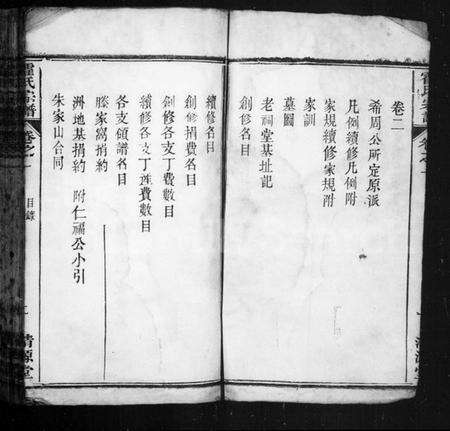 卷二
希周公所定原派
凡例續修凡例附
家規續修家規附
家訓
墓圖
老祠堂基址記
創修名目
續修名目
創修捐費名目
創修各支丁費數目
續修各支丁費數目
各支領譜名目
滕家窩捐約
洲地基捐約 附仁禰公小引
朱家山合同
氏宗譜
卷之一
目錄
清源堂